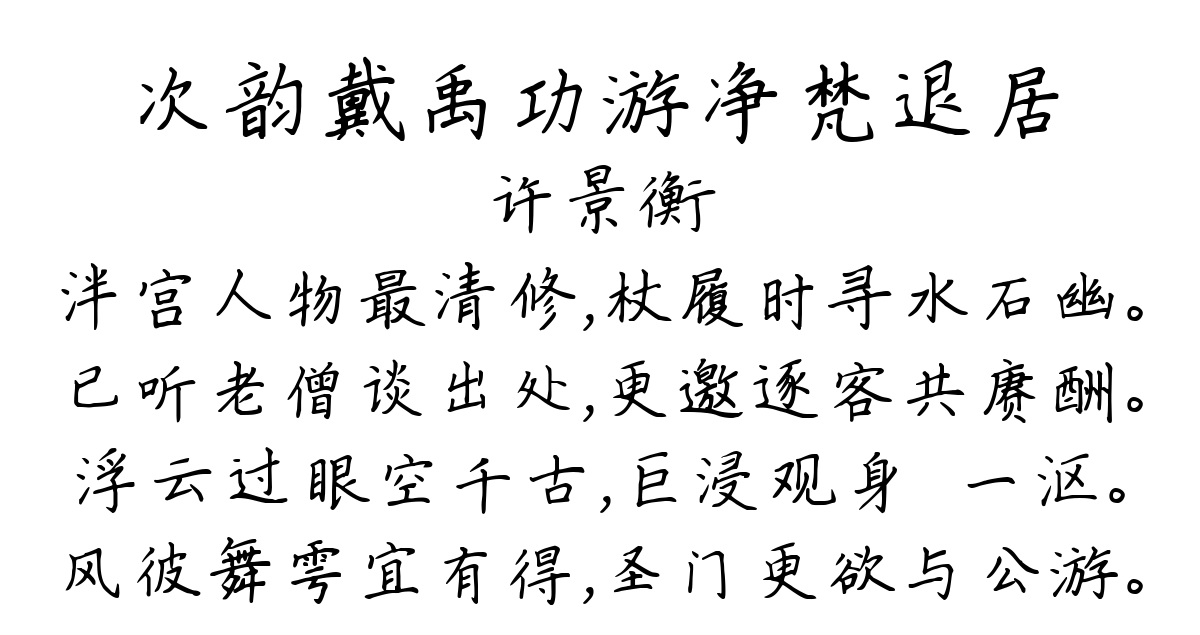 次韵戴禹功游净梵退居
许景衡
泮宫人物最清修,杖履时寻水石幽。
已听老僧谈出处,更邀逐客共赓酬。
浮云过眼空千古,巨浸观身 一沤。
风彼舞雩宜有得,圣门更欲与公游。